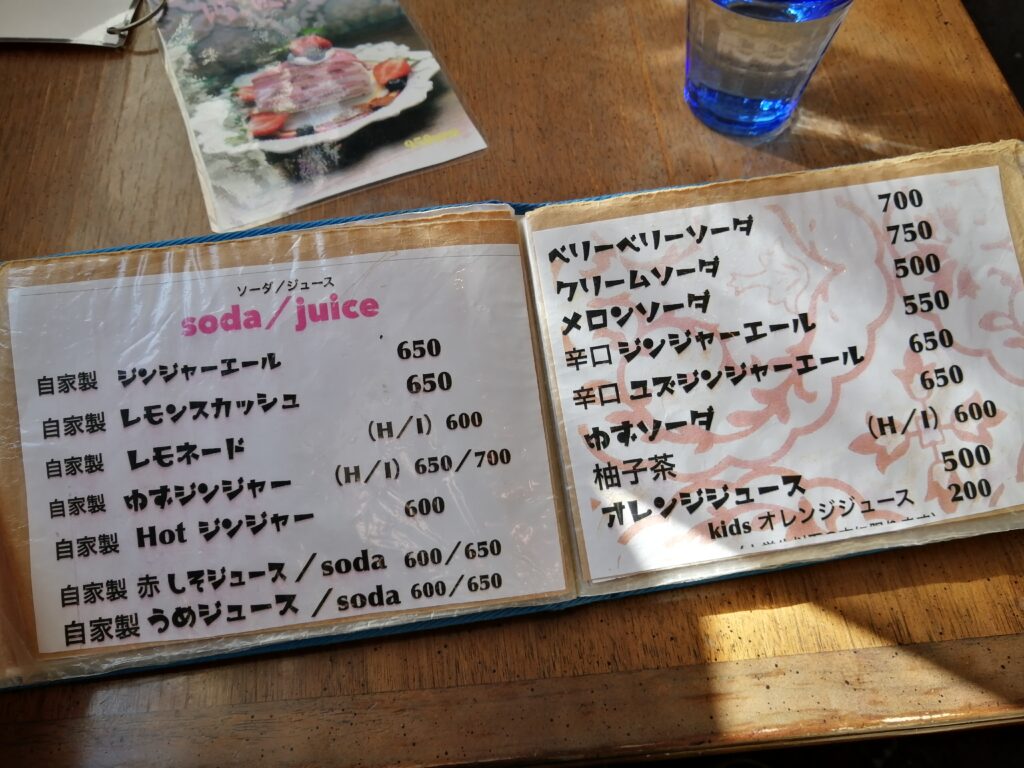 950yen
ソーダ/ジュース
soda/juice
自家製 ジンジャーエール 650
自家製 レモンスカッシュ 650
自家製 レモネード (H/I) 600
自家製 ゆずジンジャー (H/I) 650/700
自家製 Hot ジンジャー 600
自家製 赤 しそジュース/soda 600/650
自家製 うめジュース /soda 600/650
ベリーベリーソーダ 700
クリームソーダ 750
メロンソーダ 500
辛口 ジンジャーエール 550
辛口 ユズジンジャーエール 650
ゆずソーダ 650
柚子茶 (H/I) 600
オレンジジュース 500
kids オレンジジュース 200